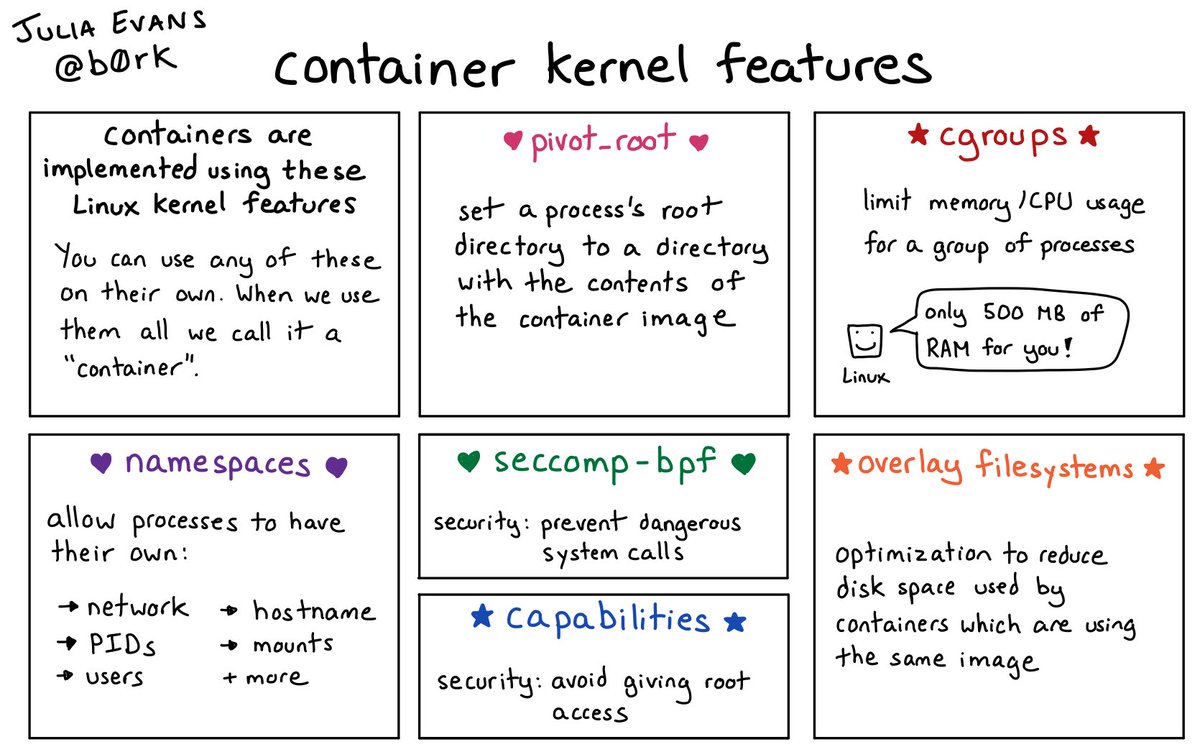 JULIA EVANS
@b0rk
container kernel features
containers are
implemented using these
Linux kernel features
You can use any of these
on their own. When we use
them all we call it a
"container".
♥ pivot_root ♥
set a process's root
directory to a directory
with the contents of
the container image
★ cgroups ★
limit memory/CPU usage
for a group of processes
only 500 MB of
RAM for you!
Linux
♥ namespaces ♥
allow processes to have
their own:
→ network → hostname
→ PIDs → mounts
→ users + more
♥ seccomp-bpf ♥
security: prevent dangerous
system calls
★ capabilities ★
security: avoid giving root
access
★ overlay filesystems ★
optimization to reduce
disk space used by
containers which are using
the same image